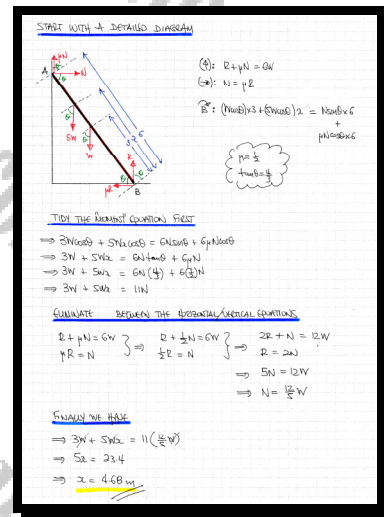 START WITH A DETAILED DIAGRAM
A
μN
N
θ
5W
W
x
3
6
R
μR
B
(↑): R + μN = 6W
(→): N = μR
B: (Wcosθ)×3 + (5Wcosθ)x = Nsinθ×6
+
μNcosθ×6
μ = 1/2
tanθ = 4/3
TIDY THE MOMENT EQUATION FIRST
⇒ 3Wcosθ + 5Wxcosθ = 6Nsinθ + 6μNcosθ
⇒ 3W + 5Wx = 6Ntanθ + 6μN
⇒ 3W + 5Wx = 6N(4/3) + 6(1/2)N
⇒ 3W + 5Wx = 11N
ELIMINATE BETWEEN THE HORIZONTAL/VERTICAL EQUATIONS
R + μN = 6W } ⇒ R + 1/2N = 6W } ⇒ 2R + N = 12W
μR = N 1/2R = N R = 2N
⇒ 5N = 12W
⇒ N = 12/5 W
FINALLY WE HAVE
⇒ 3W + 5Wx = 11(12/5 W)
⇒ 5x = 23.4
⇒ x = 4.68 m